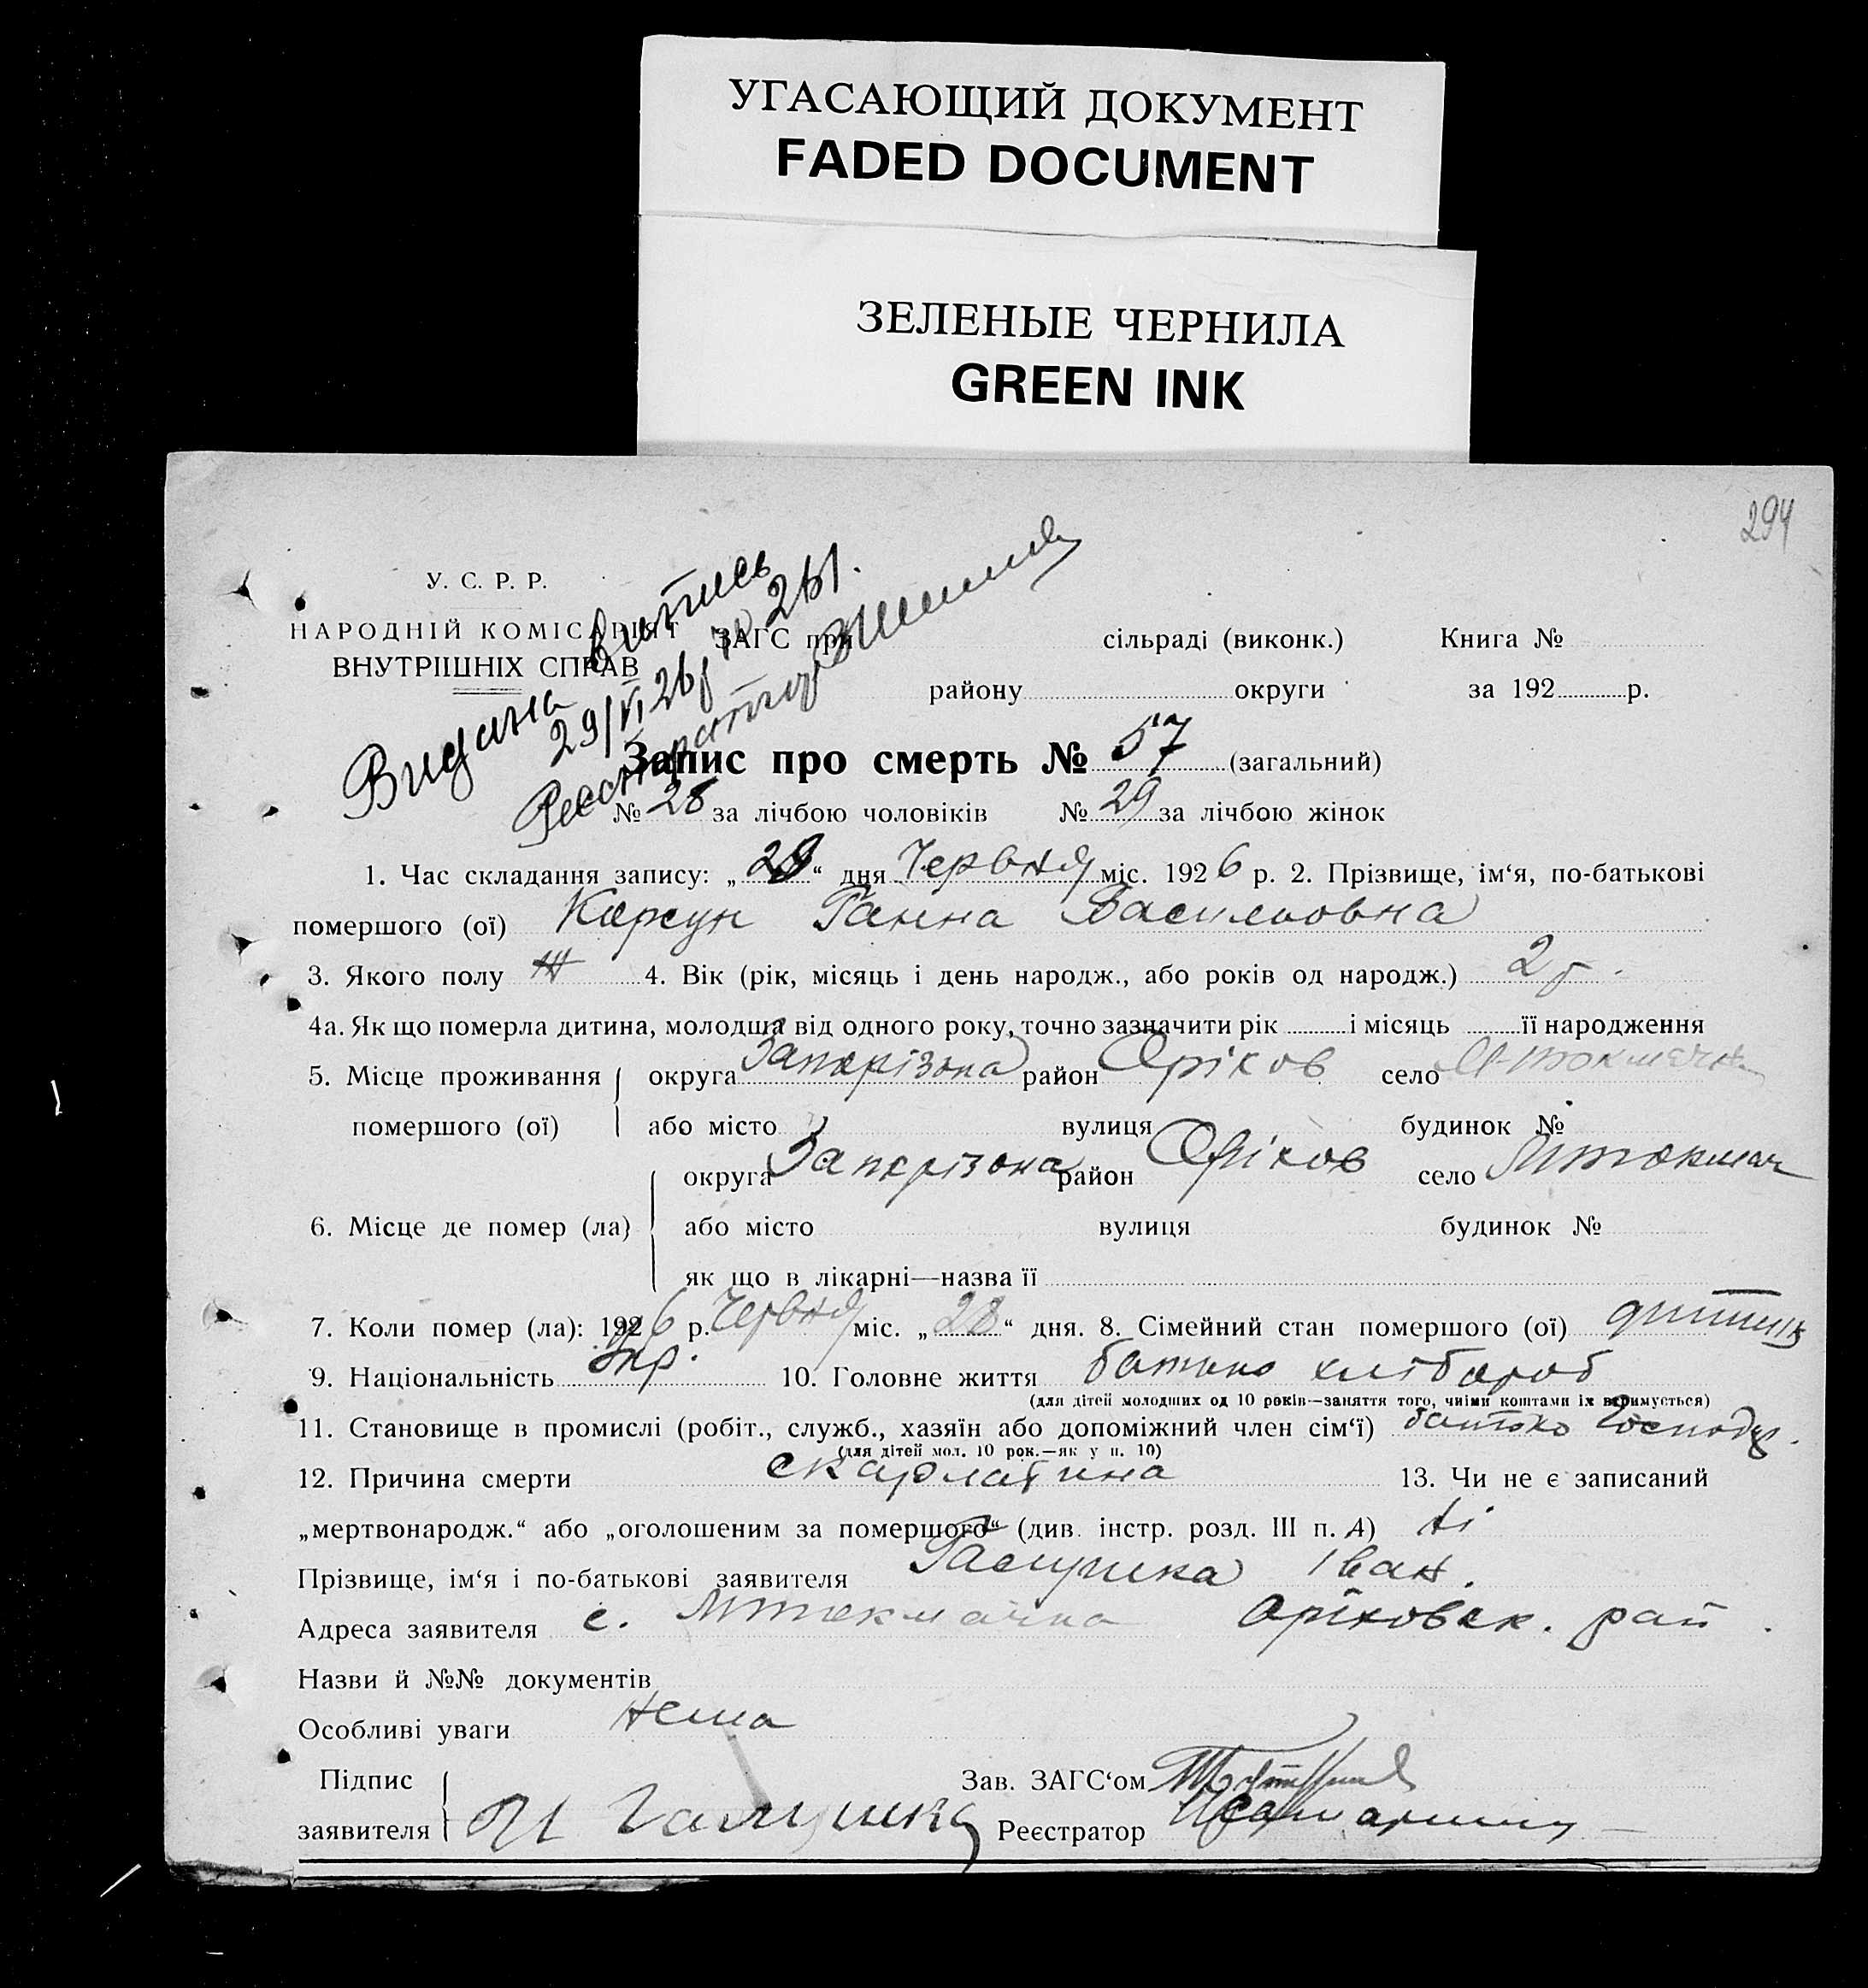 УГАСАЮЩИЙ ДОКУМЕНТ
FADED DOCUMENT
ЗЕЛЕНЫЕ ЧЕРНИЛА
GREEN INK
294
У. С. Р. Р.
НАРОДНІЙ КОМІСАРІЯТ
ВНУТРІШНІХ СПРАВ
Видана витпись
29/VI 26 р
ЗАГС при сільраді (виконк.) Книга №
району округи за 192 р.
Запис про смерть № 57 (загальний)
№ 28 за лічбою чоловіків № 29 за лічбою жінок
1. Час складання запису: „29“ дня Червня міс. 1926 р. 2. Прізвище, ім‘я, по-батькові
помершого (ої) Корсун Ганна Васильовна
3. Якого полу Ж 4. Вік (рік, місяць і день народж., або років од народж.) 2 р.
4а. Як що померла дитина, молодша від одного року, точно зазначити рік і місяць її народження
5. Місце проживання округа Запорізька район Оріхов село М-Токмачк
помершого (ої) або місто вулиця будинок №
округа Запорізька район Оріхов село Мтокмач
6. Місце де помер (ла) або місто вулиця будинок №
як що в лікарні—назва її
7. Коли помер (ла): 1926 р. Червня міс. „28“ дня. 8. Сімейний стан помершого (ої) дитина
9. Національність Укр. 10. Головне життя батько хлібороб
(для дітей молодших од 10 років—заняття того, чиїми коштами їх втримується)
11. Становище в промислі (робіт., служб., хазяїн або допоміжний член сім‘ї) батько Господар.
(для дітей мол. 10 рок.—як у п. 10)
12. Причина смерти скарлатина 13. Чи не є записаний
„мертвонародж.“ або „оголошеним за помершого“ (див. інстр. розд. III п. 4) Ні
Прізвище, ім‘я і по-батькові заявителя Галушка Іван.
Адреса заявителя с. Мтокмачка Оріховск. рай.
Назви й №№ документів
Особливі уваги Нема
Підпис Зав. ЗАГС‘ом
заявителя И Галушка Реєстратор